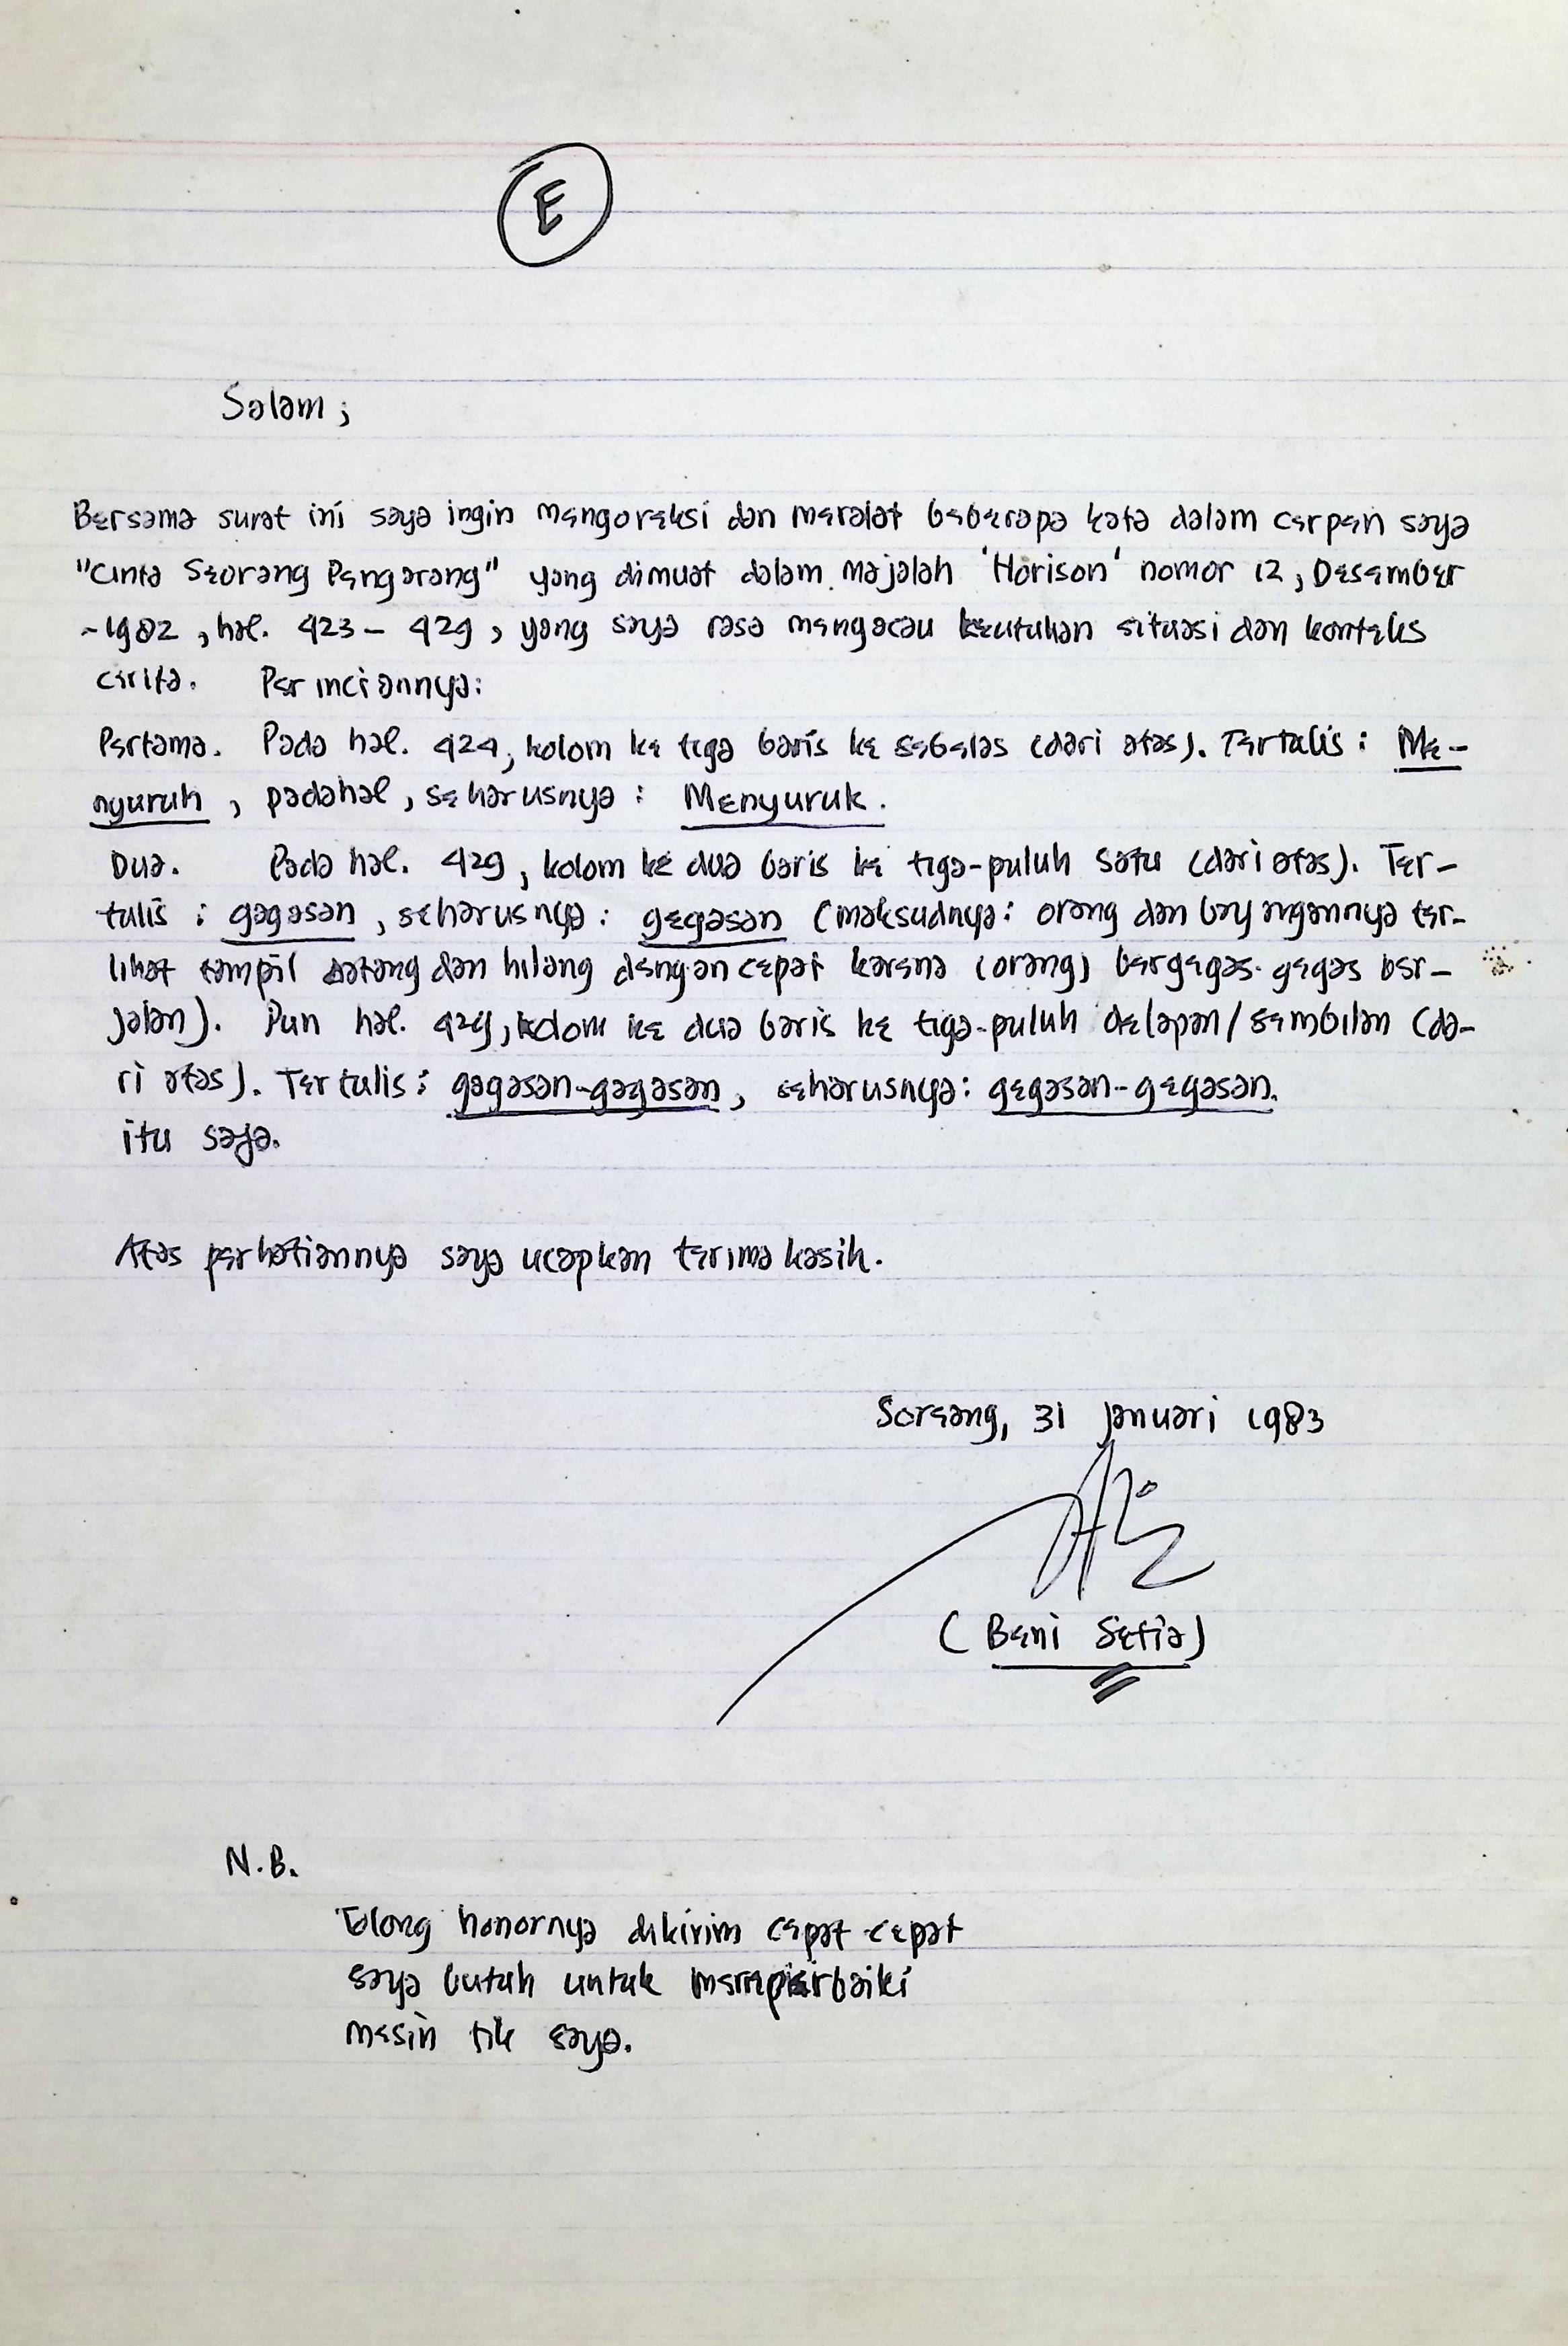 E
Salam;
Bersama surat ini saya ingin mengoreksi dan meralat beberapa kata dalam cerpen saya
"Cinta Seorang Pengarang" yang dimuat dalam majalah 'Horison' nomor 12, Desember
-1982, hal. 423 - 429, yang saya rasa mengacau keutuhan situasi dan konteks
cerita. Perinciannya:
Pertama. Pada hal. 424, kolom ke tiga baris ke sebelas (dari atas). Tertulis : Me-
nyuruh, padahal, seharusnya : Menyuruk.
Dua. Pada hal. 429, kolom ke dua baris ke tiga-puluh satu (dari atas). Ter-
tulis : gagasan, seharusnya : gegasan (maksudnya : orang dan bayangannya ter-
lihat tampil datang dan hilang dengan cepat karena (orang) bergegas-gegas ber-
jalan). Pun hal. 429, kolom ke dua baris ke tiga-puluh delapan/sembilan (da-
ri atas). Tertulis : gagasan-gagasan, seharusnya : gegasan-gegasan.
itu saja.
Atas perhatiannya saya ucapkan terima kasih.
Soreang, 31 Januari 1983
(Beni Setia)
N.B.
Tolong honornya dikirim cepat-cepat
saya butuh untuk memperbaiki
mesin tik saya.